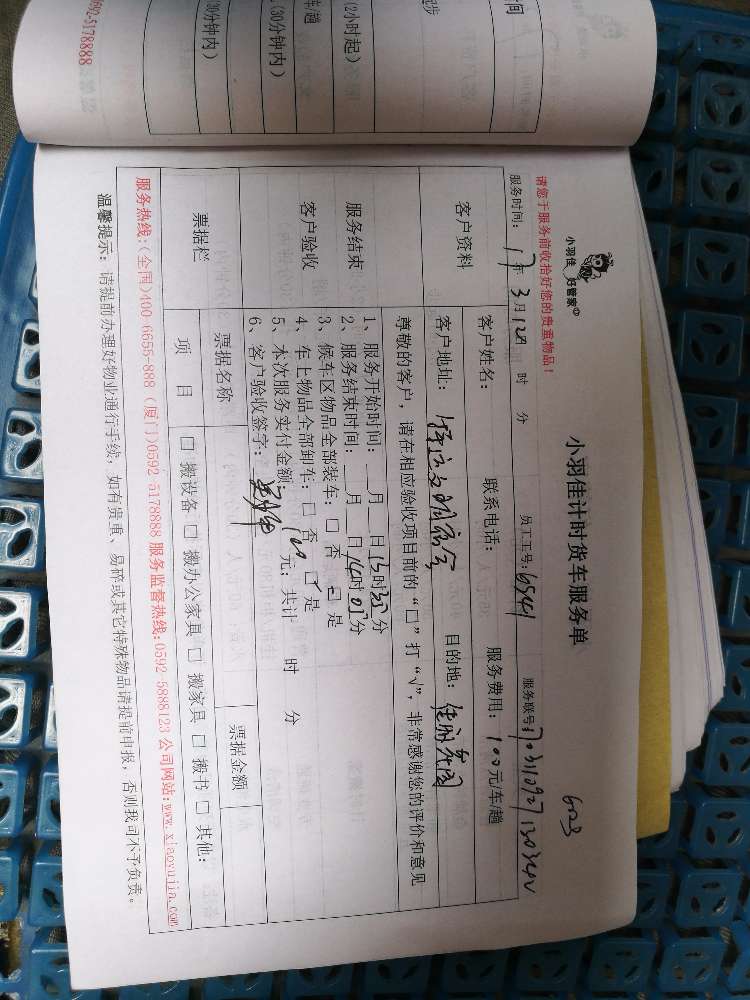 小羽佳 好管家
小羽佳计时货车服务单
6023
请您于服务前收拾好您的贵重物品！
服务时间：17年3月12日 时 分 员工工号：6541 服务联号：
客户资料
客户姓名： 联系电话： 服务费用：100元/车/趟
客户地址： 目的地：
尊敬的客户，请在相应验收项目前的“□”打“√”，非常感谢您的评价和意见
服务结束
客户验收
1、服务开始时间：__月__日13时35分
2、服务结束时间：__月__日14时05分
3、候车区物品全部装车：□ 否 □ 是
4、车上物品全部卸车：□ 否 □ 是
5、本次服务实付金额：100元；共计 时 分
6、客户验收签字：
票据栏
票据名称 票据金额
项 目 □ 搬设备 □ 搬办公家具 □ 搬家具 □ 搬书 □ 其他：
服务热线：(全国)400-6655-888 (厦门)0592-5178888 服务监督热线：0592-5888123 公司网站：www.xiaoyujia.com
温馨提示：请提前办理好物业通行手续，如有贵重、易碎或其它特殊物品请提前申报，否则我司不予负责。
时间
起步
(2小时起)
车/趟
(30分钟内)
30分钟内)
0592-5178888